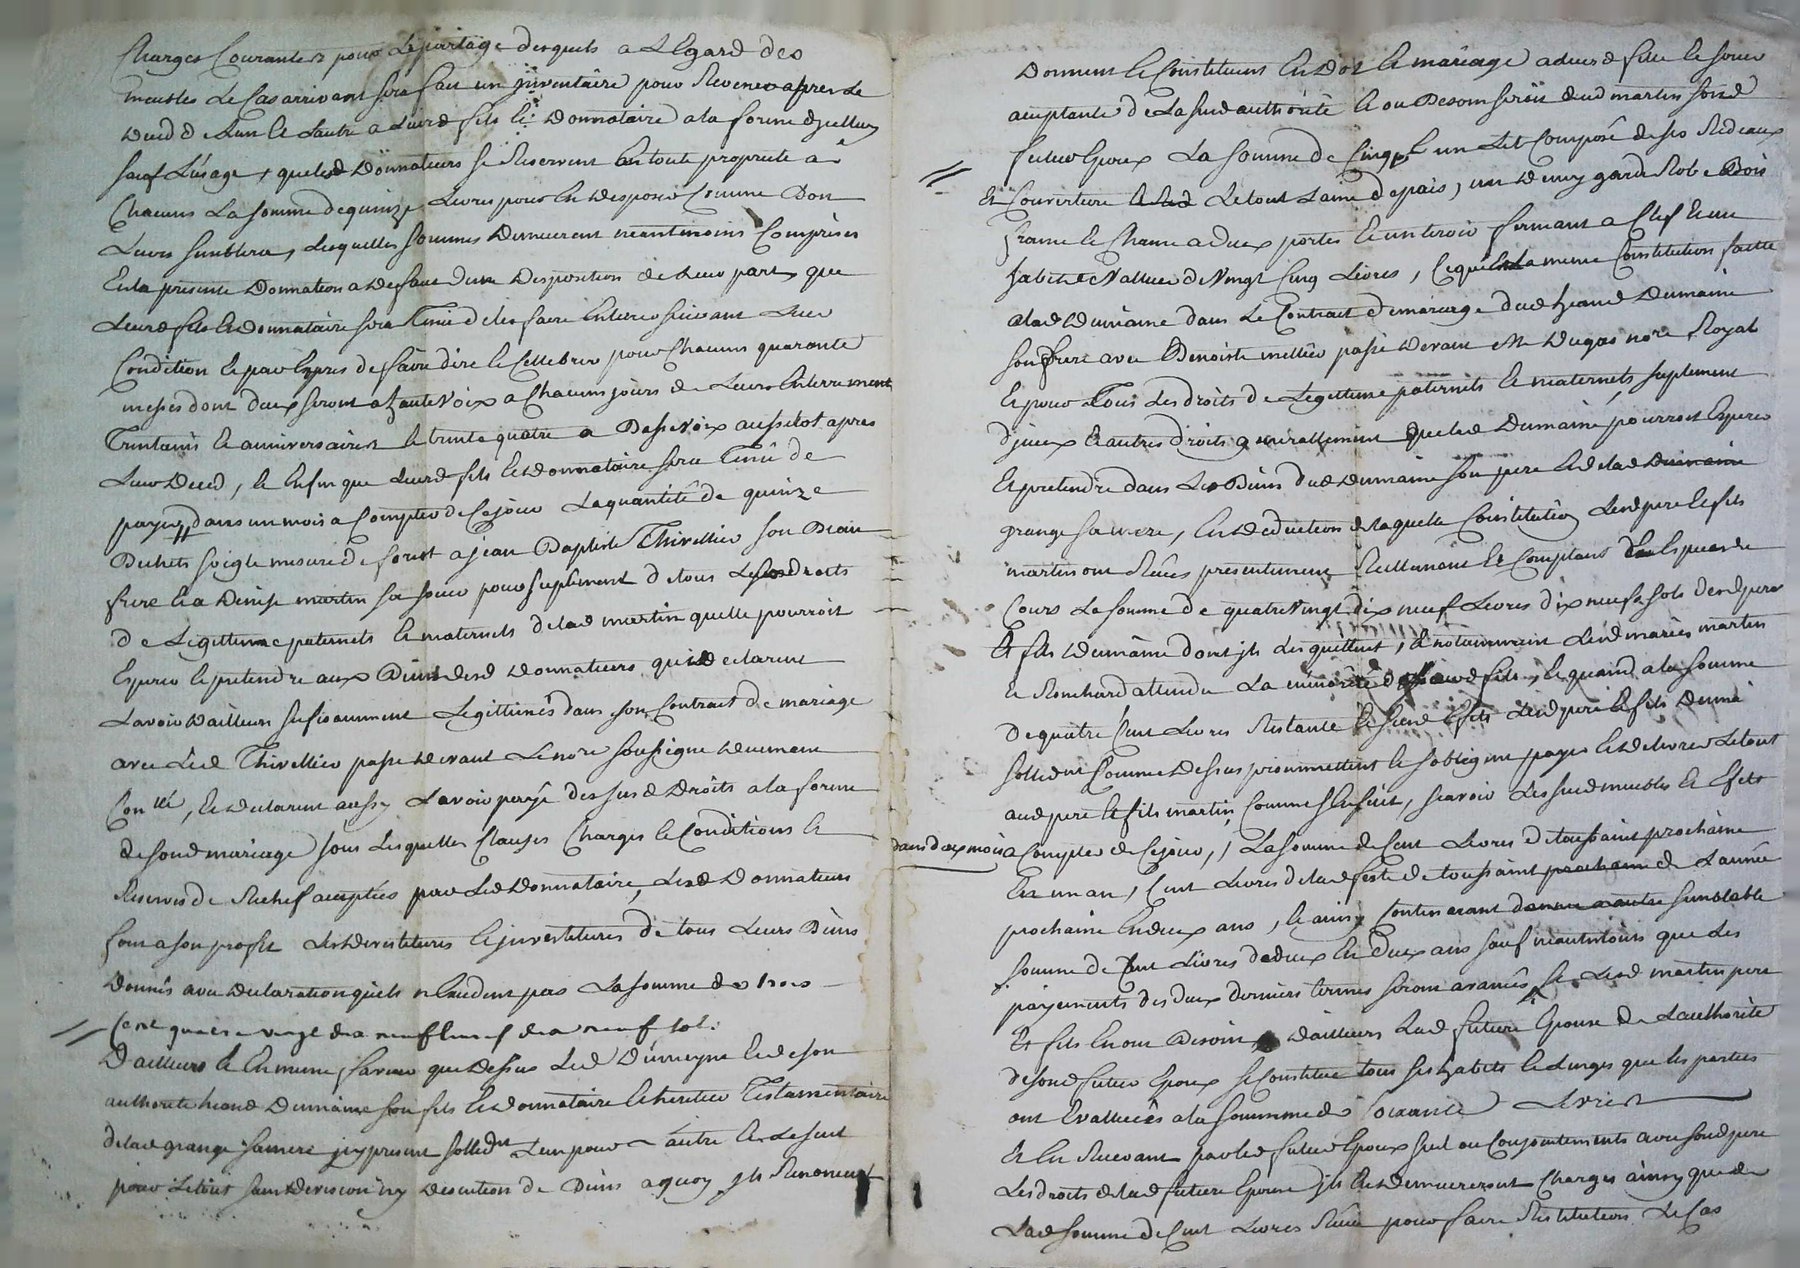 Charges Courantes pour le partage desquels a l'Egard des
meubles le Cas arrivant sera fait un inventaire pour Revenir apres le
deced de l'un et l'autre a leurd fils et donnataire a la forme
sauf l'usage, que lesd donnateurs se Reservent en toute propriete a
Chacuns la somme de quinze Livres pour en disposer Comme Bon
Leurs semblera, lesquelles sommes demeurent neantmoins Comprises
En la presente donnation a deffaut d'une disposition de leur part, que
Leurd fils et donnataire sera Tenu de les faire enterrer suivant leur
Condition et par Exprès de faire dire et Cellebrer pour Chacuns quarante
messes dont deux seront a haute Voix a Chacuns jours de Leurs Enterrement
Trentains et anniversaires et trente quatre a Basse Voix aussitot apres
Leur deced, et Enfin que leurd fils et donnataire sera Tenu de
payer dans un mois a Compter de Cejour La quantité de quinze
Bichets soigle mesure de forest a jean Baptiste Thivellier son Beau
frere et a Denise martin sa soeur pour suplement de tous les droits
de Legittime paternels et maternels de lad martin quelle pourroit
Esperer et pretendre aux Biens desd donnateurs qui declarent
L'avoir d'ailleurs suffisamment Legittimés dans son Contrat de mariage
avec led Thivellier passe devant le nore soussigne duement
Con.llé, et declarent aussy L'avoir payé des susd droits a la forme
de sond mariage, sous lesquelles Clauses Charges et Conditions et
Reserves de Rechef acceptées par led donnataire, lesd donnateurs
font a son profit les devestitures et investitures de tous Leurs Biens
donnés avec declaration qu'ils n'excedent pas la somme de
Cent quatre vingt dix neuf livres dix neuf sols.
D'ailleurs et En meme faveur que dessus Led Dumeyne et de son
authorite jeand Dumaine son fils et donnataire et heritier Testamentaire
de lad grange sa mere icy present sollidt L'un pour l'autre et le seul
pour Letout sans division ny discution de Biens a quoy ils Renoncent
Donnent et Constituent en Dot et mariage a leurd fille et soeur
acceptante de la susd authorité et ou Besoin seroit dud martin sond
futur Epoux La somme de Cinq un Lit Composé de ses Rideaux
et Couverture Letout Laine de pais, un demy garde Robe Bois
frane et Chene a deux portes et un tiroir fermant a Clef et un
habit Evalluer de Vingt Cinq Livres, la meme Constitution faitte
alad Dumaine dans Le Contract de mariage dud jeand Dumaine
son frere avec Benoiste mellier passé devant Me Dugas nore Royal
Et pour Tous les droits de Legittime paternels et maternels, suplement
d'iceux et autres droits generallement que lad Dumaine pourroit Esperer
Et pretendre dans les Biens dud Dumaine son pere et de lad
grange sa mere, En deduction de laquelle Constitution lesd pere et fils
martin ont Reçus presentement Reellement et Comptant en Especes de
Cours La somme de quatre Vingt dix neuf Livres dix neuf sols desd pere
Et fils Dumaine dont ils les quittent, et notamment lesd mariés martin
et Ronchard attendu La minorité de leurd fils, et quand a la somme
De quatre Cent Livres Restante et susd Effets lesd pere et fils Dumai
sollidt Comme dessus promettent et s'obligent payer et delivrer Letout
aud pere et fils martin Comme s'Ensuit, scavoir les susd meubles et Effets
dans deux mois a Compter de Cejour, La somme de Cent Livres de toussaint prochaine
En un an, Cent Livres de lad feste de toussaint de L'année
prochaine en deux ans, et ainsy Continuant semblable
somme de Cent Livres de deux En deux ans sauf neantmoins que les
payements des deux derniers termes seront avancés si lesd martin pere
Et fils En ont Besoin, d'ailleurs Lad future Epouse de L'authorité
de sond futur Epoux se Constitue tous ses habits et Linges que les parties
ont Evalluées a la somme de soixante Livres
Et En Recevant par led futur Epoux seul ou Conjointements avec sond pere
Les droits de lad future Epouse ils En demeureront Charges ainsy que de
Lad somme de Cent Livres Recue pour faire Restitution Le Cas